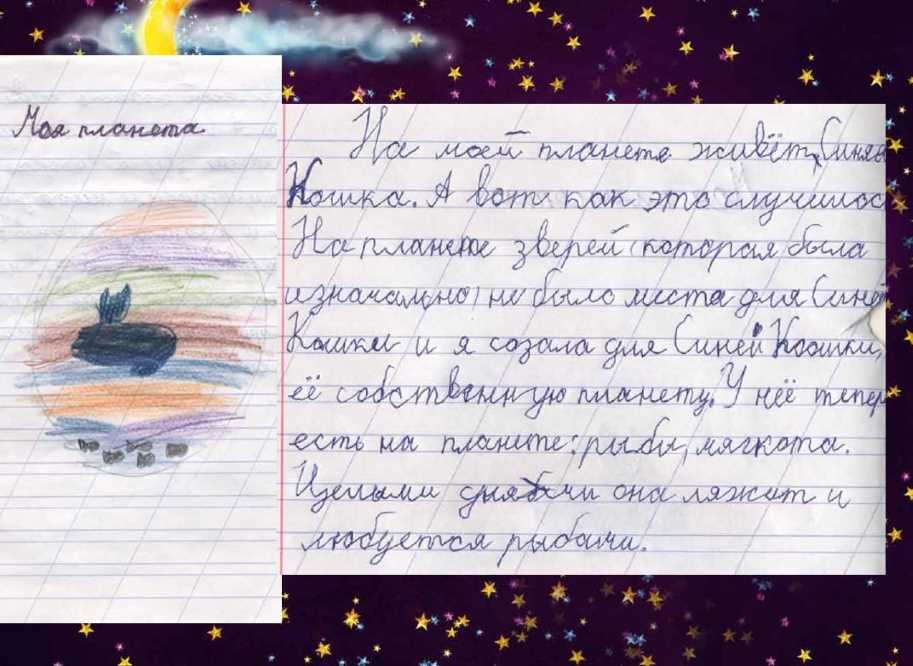 Моя планета
На моей планете живёт, Синяя
Кошка. А вот как это случилос
На планете зверей (которая была
изначально) не было места для Синей
Кошки и я созала для Синей Коошки,
её собственную планету. У неё тепер
есть на планите: рыбы, мягкота.
Целыми днями она ляжит и
любуется рыбами.